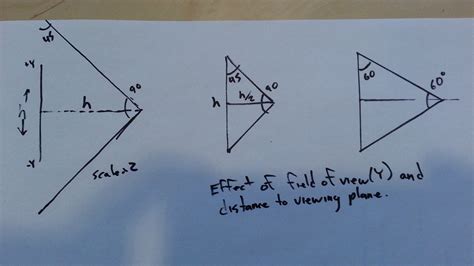 45
+Y
h
h
90
-Y
scale x2
45
90
h
h/2
60
60°
Effect of field of view (Y) and
distance to viewing plane.